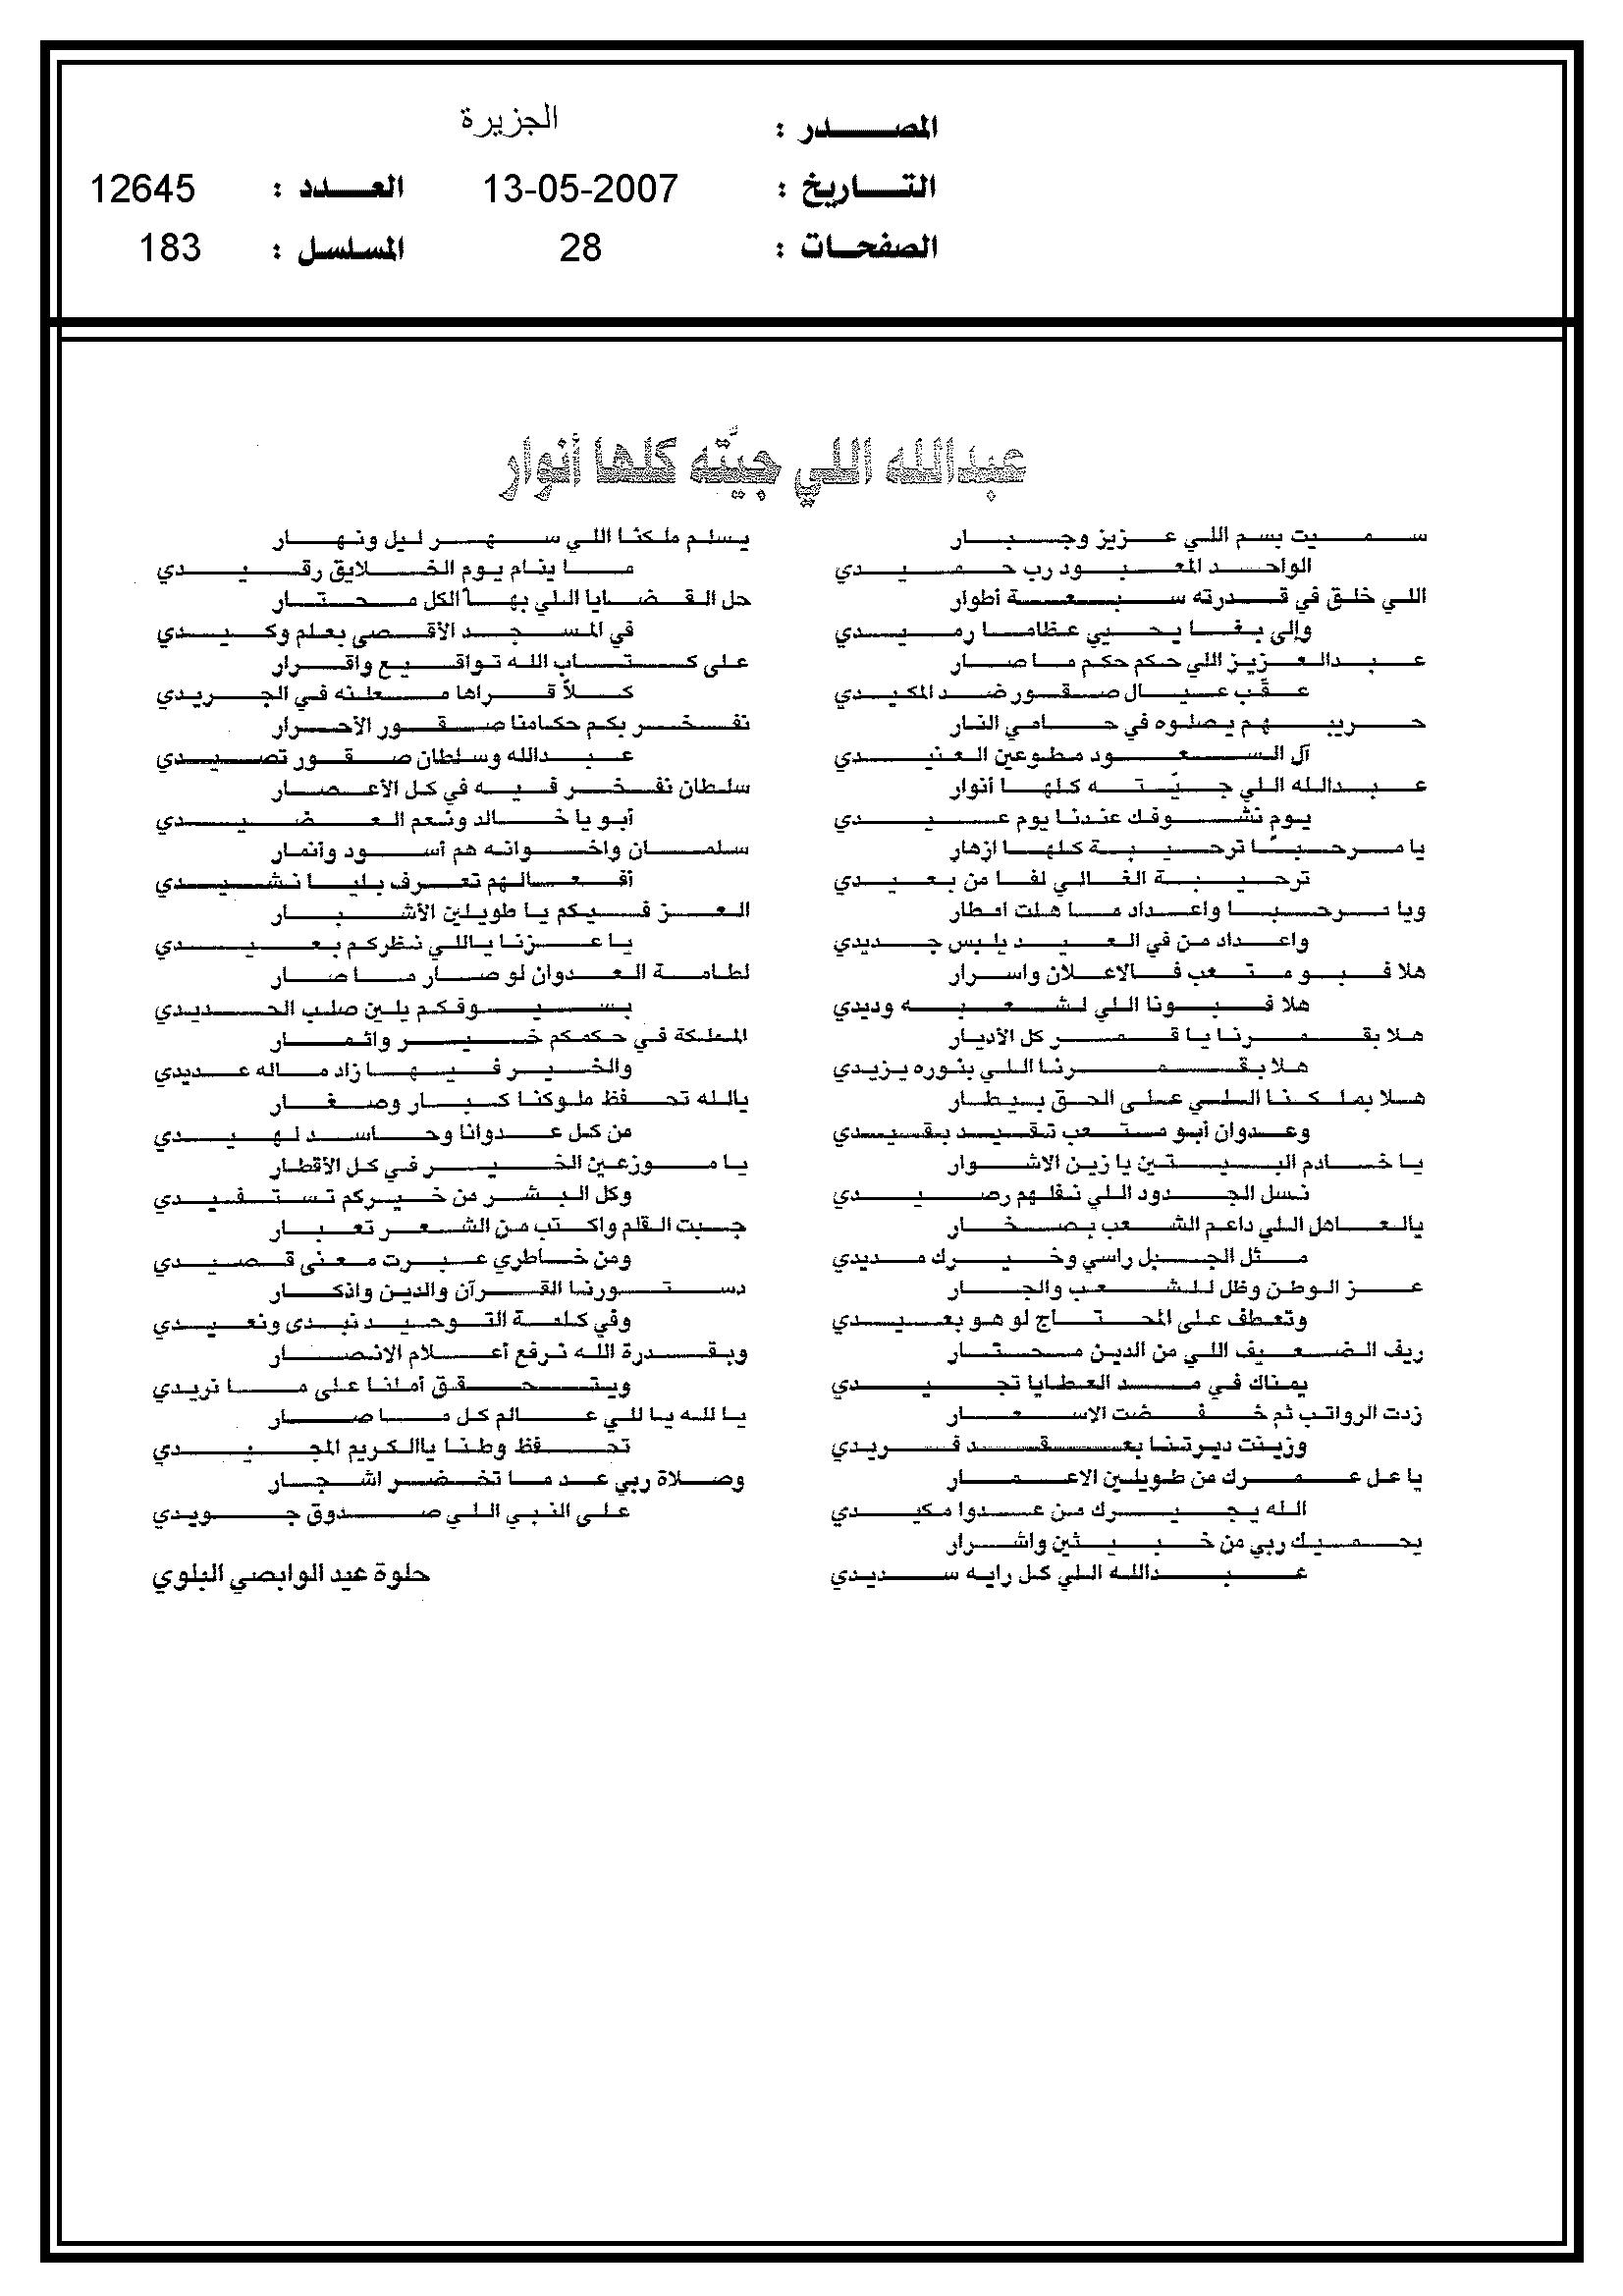 المصدر : الجزيرة
التاريخ : 13-05-2007 العدد : 12645
الصفحات : 28 المسلسل : 183
عبدالله اللي جيّته كلها أنوار
سميت بسم اللي عزيز وجبار
الواحد المعبود رب حميدي
اللي خلق في قدرته سبعة أطوار
وإلى بغا يحيي عظاما رميدي
عبدالعزيز اللي حكم حكم ما صار
عقّب عيال صقور ضد المكيدي
حريبهم يصلوه في حامي النار
آل السعود مطوعين العنيدي
عبدالله اللي جيّته كلها أنوار
يوم نشوفك عندنا يوم عيدي
يا مرحباً ترحيبة كلها ازهار
ترحيبة الغالي لفا من بعيدي
ويا مرحبا واعداد ما هلت امطار
واعداد من في العيد يلبس جديدي
هلا فبو متعب فالاعلان واسرار
هلا فبونا اللي لشعبه وديدي
هلا بقمرنا يا قمر كل الأديار
هلا بقمرنا اللي بنوره يزيدي
هلا بملكنا اللي على الحق بيطار
وعدوان أبو متعب تقيد بقيدي
يا خادم البيتين يا زين الاشوار
نسل الجدود اللي نقلهم رصيدي
يالعاهل اللي داعم الشعب بصخار
مثل الجبل راسي وخيرك مديدي
عز الوطن وظل للشعب والجار
وتعطف على المحتاج لو هو بعيدي
ريف الضعيف اللي من الدين محتار
يمناك في مد العطايا تجيدي
زدت الرواتب ثم خفضت الاسعار
وزينت ديرتنا بعقد فريدي
يا عل عمرك من طويلين الاعمار
الله يجيرك من عدوا مكيدي
يحميك ربي من خبيثين واشرار
عبدالله اللي كل رايه سديدي
يسلم ملكنا اللي سهر ليل ونهار
ما ينام يوم الخلايق رقيدي
حل القضايا اللي بها الكل محتار
في المسجد الأقصى بعلم وكيدي
على كتاب الله تواقيع واقرار
كلاً قراها معلنه في الجريدي
نفخر بكم حكامنا صقور الأحرار
عبدالله وسلطان صقور تصيدي
سلطان نفخر فيه في كل الأعصار
أبو يا خالد ونعم العضيدي
سلمان واخوانه هم أسود وأنمار
أفعالهم تعرف بليا نشيدي
العز فيكم يا طويلين الأشبار
يا عزنا ياللي نظركم بعيدي
لطامة العدوان لو صار ما صار
بسيوفكم يلين صلب الحديدي
المملكة في حكمكم خير واثمار
والخير فيها زاد ماله عديدي
يالله تحفظ ملوكنا كبار وصغار
من كل عدوانا وحاسد لهيدي
يا موزعين الخير في كل الأقطار
وكل البشر من خيركم تستفيدي
جبت القلم واكتب من الشعر تعبار
ومن خاطري عبرت معنى قصيدي
دستورنا القرآن والدين واذكار
وفي كلمة التوحيد نبدى ونعيدي
وبقدرة الله نرفع أعلام الانصار
ويتحقق أملنا على ما نريدي
يا لله يا للي عالم كل ما صار
تحفظ وطنا ياالكريم المجيدي
وصلاة ربي عد ما تخضر اشجار
على النبي اللي صدوق جويدي
حلوة عيد الوابصي البلوي